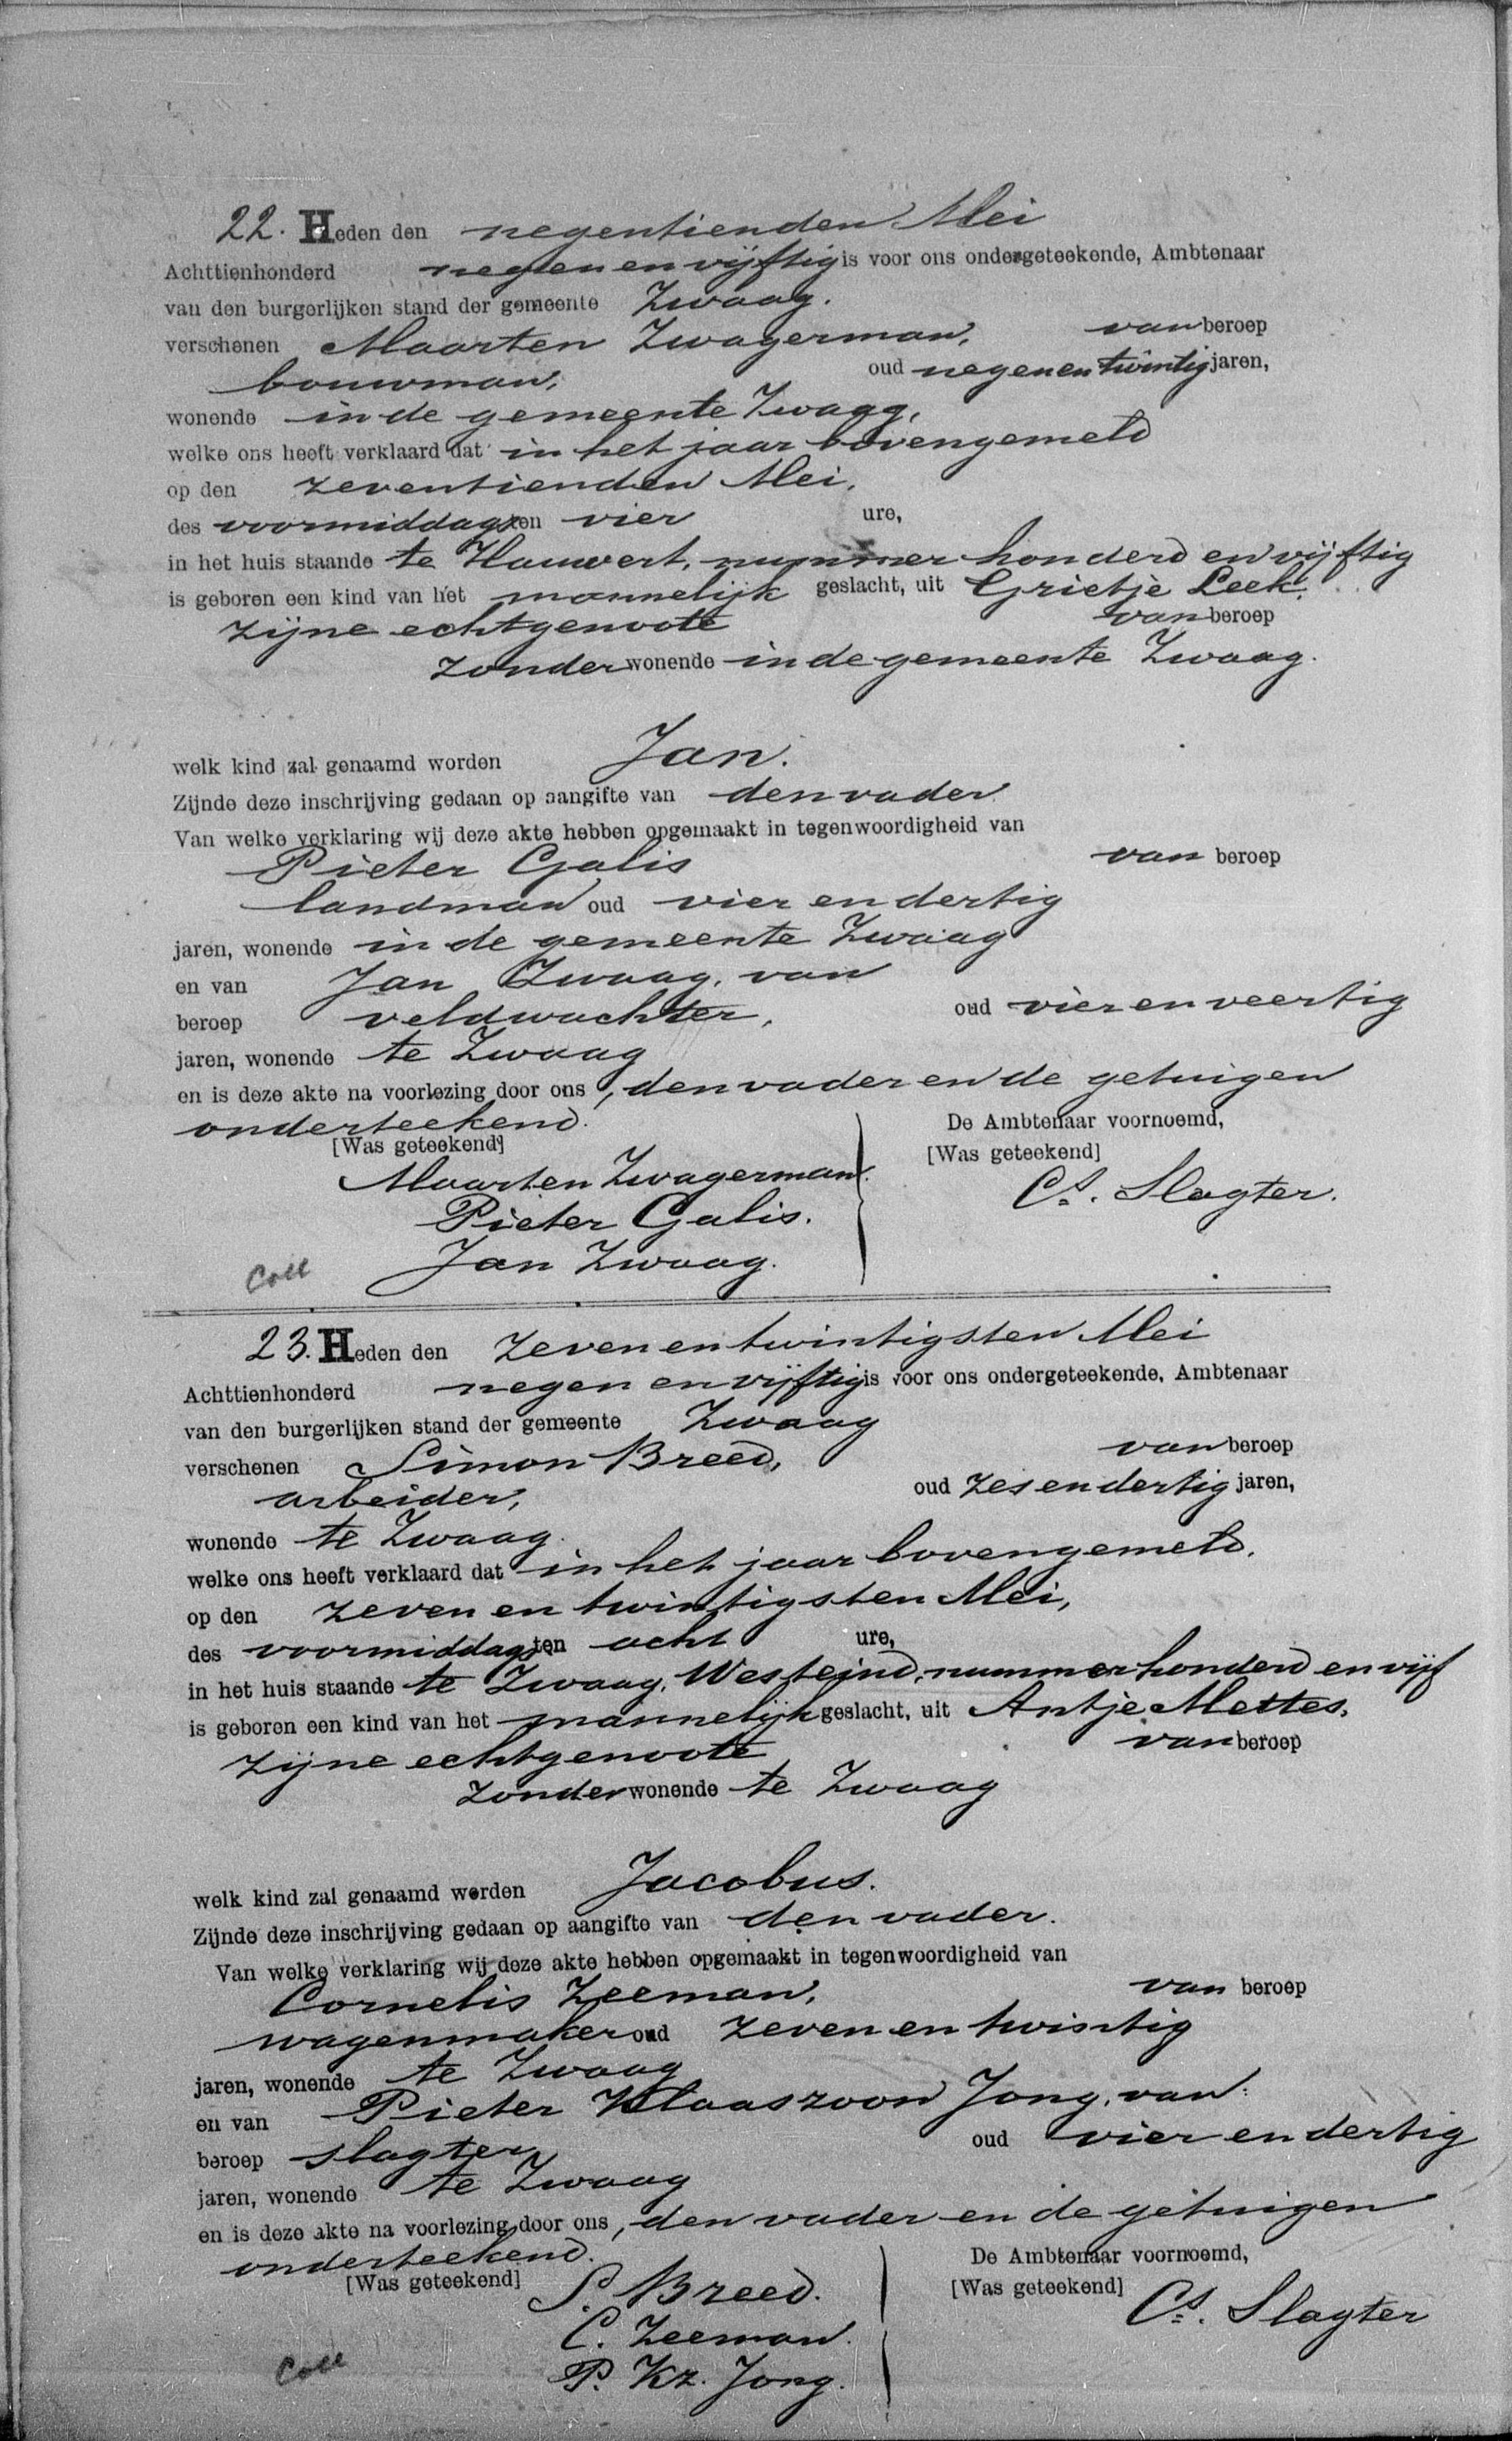 22. Heden den negentienden Mei
Achttienhonderd negen en vijftig is voor ons ondergeteekende, Ambtenaar
van den burgerlijken stand der gemeente Zwaag.
verschenen Maarten Zwagerman, van beroep
bouwman, oud negen en twintig jaren,
wonende in de gemeente Zwaag,
welke ons heeft verklaard dat in het jaar bovengemeld
op den zeventienden Mei,
des voormiddags ten vier ure,
in het huis staande te Hauwert, nummer honderd en vijftig
is geboren een kind van het mannelijk geslacht, uit Grietje Leek,
zijne echtgenoote van beroep
zonder wonende in de gemeente Zwaag.
welk kind zal genaamd worden Jan.
Zijnde deze inschrijving gedaan op aangifte van den vader
Van welke verklaring wij deze akte hebben opgemaakt in tegenwoordigheid van
Pieter Galis van beroep
landman oud vier en dertig
jaren, wonende in de gemeente Zwaag
en van Jan Zwaag, van
beroep veldwachter, oud vier en veertig
jaren, wonende te Zwaag
en is deze akte na voorlezing door ons, den vader en de getuigen
onderteekend.
De Ambtenaar voornoemd,
[Was geteekend] [Was geteekend]
Maarten Zwagerman. Cs. Slagter.
Pieter Galis.
Jan Zwaag.
Coll
23. Heden den zeven en twintigsten Mei
Achttienhonderd negen en vijftig is voor ons ondergeteekende, Ambtenaar
van den burgerlijken stand der gemeente Zwaag
verschenen Simon Breed, van beroep
arbeider, oud zes en dertig jaren,
wonende te Zwaag.
welke ons heeft verklaard dat in het jaar bovengemeld.
op den zeven en twintigsten Mei,
des voormiddags ten acht ure,
in het huis staande te Zwaag, Westeind, nummer honderd en vijf
is geboren een kind van het mannelijk geslacht, uit Antje Mettes,
zijne echtgenoote van beroep
zonder wonende te Zwaag
welk kind zal genaamd worden Jacobus.
Zijnde deze inschrijving gedaan op aangifte van den vader.
Van welke verklaring wij deze akte hebben opgemaakt in tegenwoordigheid van
Cornelis Zeeman, van beroep
wagenmaker oud zeven en twintig
jaren, wonende te Zwaag
en van Pieter Klaaszoon Jong, van
beroep slagter, oud vier en dertig
jaren, wonende te Zwaag
en is deze akte na voorlezing door ons, den vader en de getuigen
onderteekend.
De Ambtenaar voornoemd,
[Was geteekend] [Was geteekend]
S. Breed. Cs. Slagter
C. Zeeman.
P. Kz. Jong.
Coll